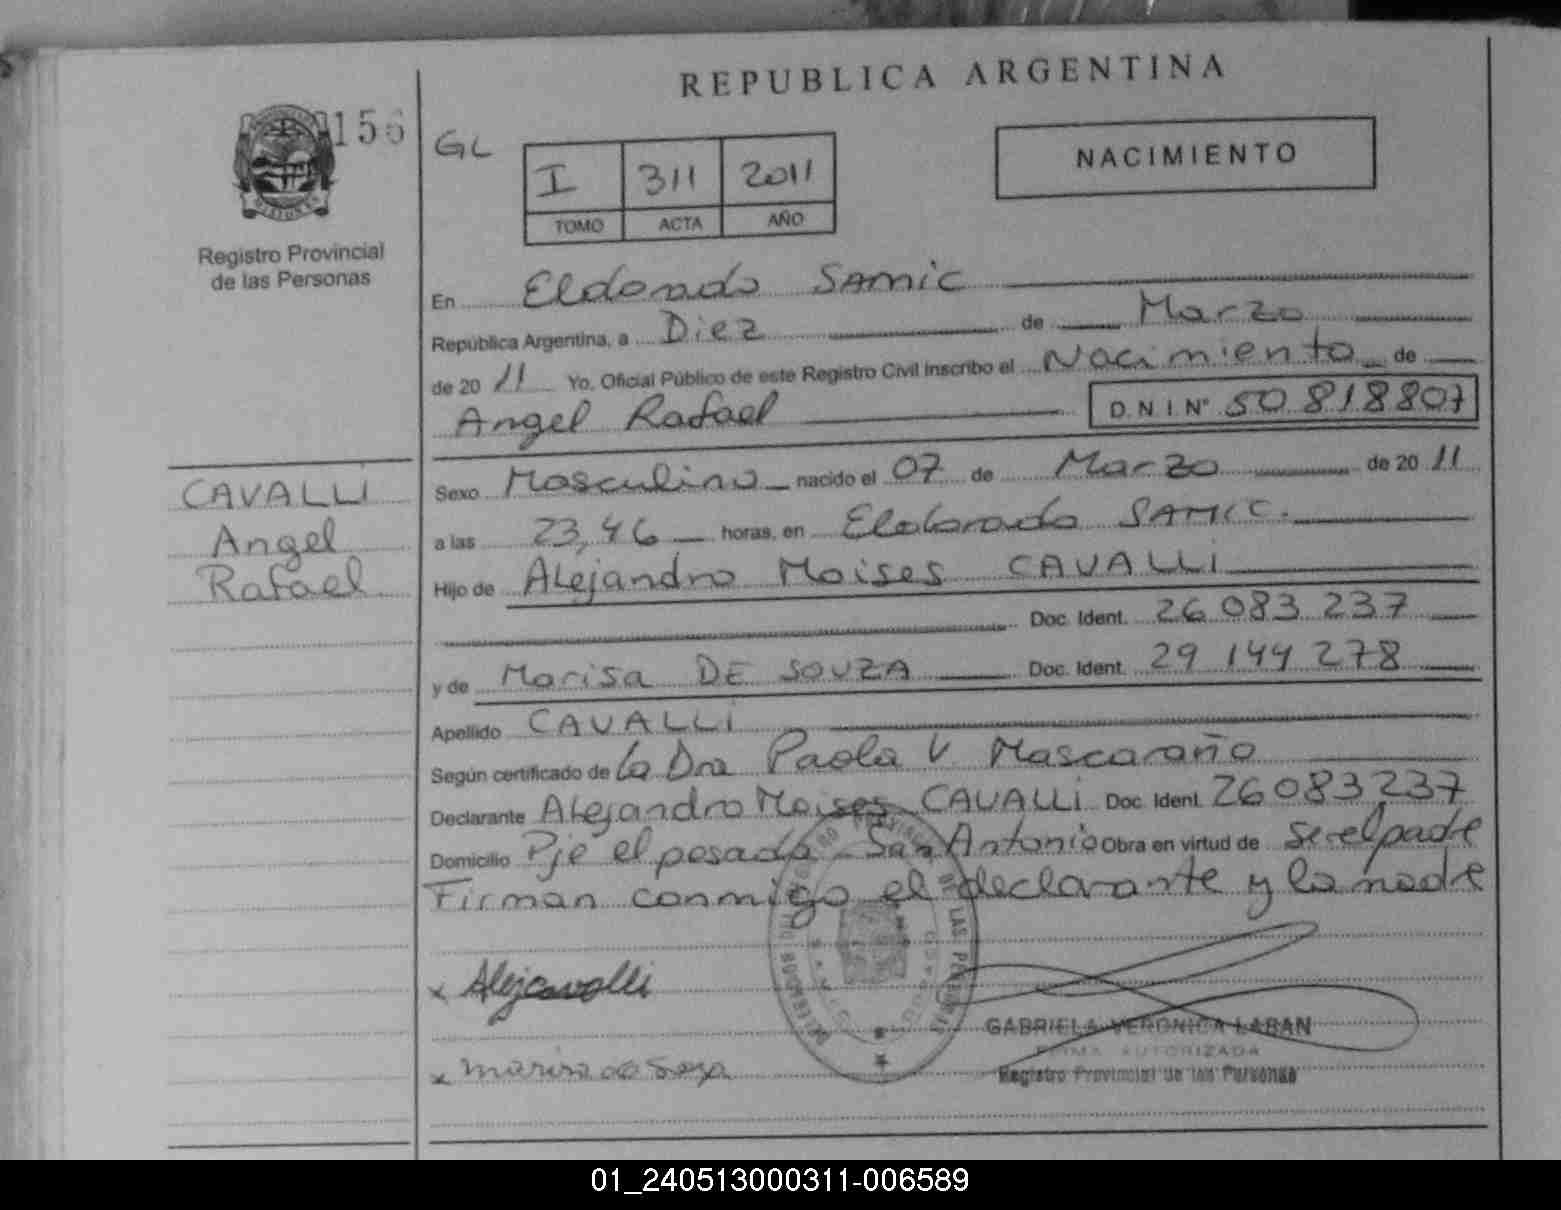 REPUBLICA ARGENTINA
156
GL
I 311 2011
TOMO ACTA AÑO
NACIMIENTO
MISIONES
Registro Provincial
de las Personas
En Eldorado SAMIC
República Argentina, a Diez de Marzo
de 2011 Yo, Oficial Público de este Registro Civil inscribo el Nacimiento de
Angel Rafael D.N.I. Nº 50 818807
CAVALLI
Angel
Rafael
Sexo Masculino nacido el 07 de Marzo de 2011
a las 23,46 horas, en Eldorado SAMIC.
Hijo de Alejandro Moises CAVALLI
Doc. Ident. 26 083 237
y de Marisa DE SOUZA Doc. Ident. 29 144 278
Apellido CAVALLI
Según certificado de la Dra Paola V Mascaraño
Declarante Alejandro Moises CAVALLI Doc. Ident. 26083237
Domicilio Pje el posado San Antonio Obra en virtud de ser el padre
Firman conmigo el declarante y la madre
x Alejcavalli
x marisa de Soza
GABRIELA VERONICA LABAN
FIRMA AUTORIZADA
Registro Provincial de las Personas
01_240513000311-006589